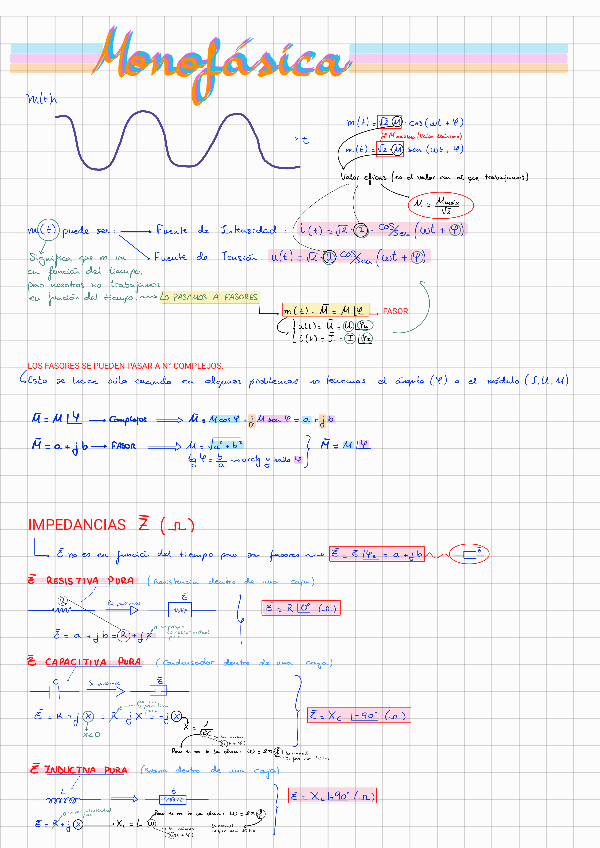 Monofásica
m(t)
t
m(t) = √2 · M · cos(ωt + φ)
m(t) = √2 · M sen(ωt + φ)
Valor eficaz (es el valor con el que trabajamos)
M = Mmáx/√2
m(t) puede ser: → Fuente de Intensidad : i(t) = √2 · I · cos/sen (ωt + φ)
→ Fuente de Tensión u(t) = √2 · U cos/sen (ωt + φ)
Significa que m va
en función del tiempo,
pero nosotros no trabajamos
en función del tiempo. → Lo PASAMOS A FASORES
m(t) = M̄ = M |φ → FASOR
u(t) = Ū = U |φu
i(t) = Ī = I |φi
LOS FASORES SE PUEDEN PASAR A Nº COMPLEJOS.
Esto se hace sólo cuando en algunos problemas no tenemos el ángulo (φ) o el módulo (I, U, M)
M̄ = M |φ → Complejos ⇒ M̄ = M cos φ + j M sen φ = a + j b
M̄ = a + j b → FASOR ⇒ M = √a² + b² } M̄ = M |φ
tg φ = b/a
IMPEDANCIAS Z̄ (Ω)
Z̄ no es en función del tiempo pero son fasores → Z̄ = Z |φz = a + j b
Z̄ RESISTIVA PURA (Resistencia dentro de una caja)
Z̄
Z̄ = a + j b = R + j X
Z̄ = R |0° (Ω)
Z̄ CAPACITIVA PURA (Condensador dentro de una caja)
C
Z̄
Z̄ = R + j X = R̶ j X = -j X
X<0
Z̄ = Xc |-90° (Ω)
Z̄ INDUCTIVA PURA (Bobina dentro de una caja)
L
Z̄
Z̄ = R + j X
XL = L ω
Z̄ = XL |+90° (Ω)